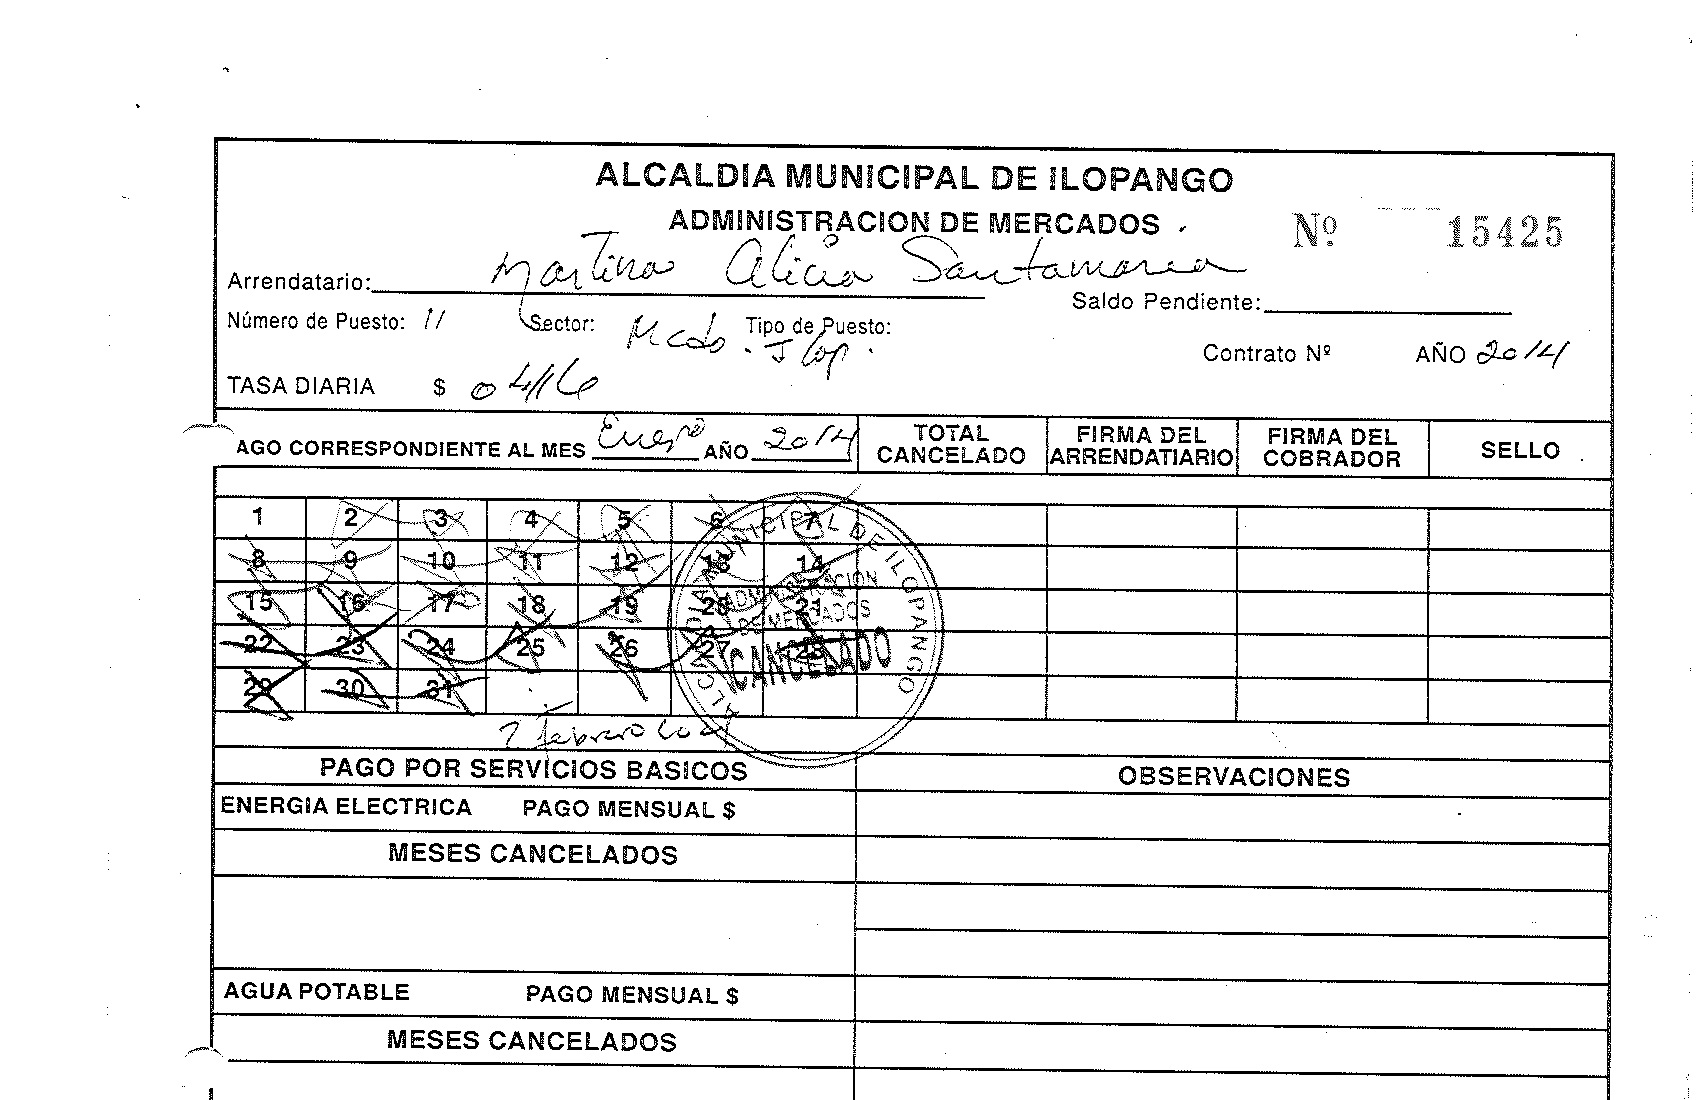 ALCALDIA MUNICIPAL DE ILOPANGO
ADMINISTRACION DE MERCADOS
Nº 15425
Arrendatario: Martina Alicia Santamaria
Saldo Pendiente:
Número de Puesto: 11 Sector: Mcdo. Ilop. Tipo de Puesto:
Contrato Nº AÑO 2014
TASA DIARIA $
AGO CORRESPONDIENTE AL MES Enero AÑO 2014
TOTAL CANCELADO
FIRMA DEL ARRENDATIARIO
FIRMA DEL COBRADOR
SELLO
1 2 3 4 5 6 7
8 9 10 11 12 13 14
15 16 17 18 19 20 21
22 23 24 25 26 27 28
29 30 31
ALCALDIA MUNICIPAL DE ILOPANGO
ADMINISTRACION
DE MERCADOS
CANCELADO
febrero
PAGO POR SERVICIOS BASICOS
OBSERVACIONES
ENERGIA ELECTRICA PAGO MENSUAL $
MESES CANCELADOS
AGUA POTABLE PAGO MENSUAL $
MESES CANCELADOS